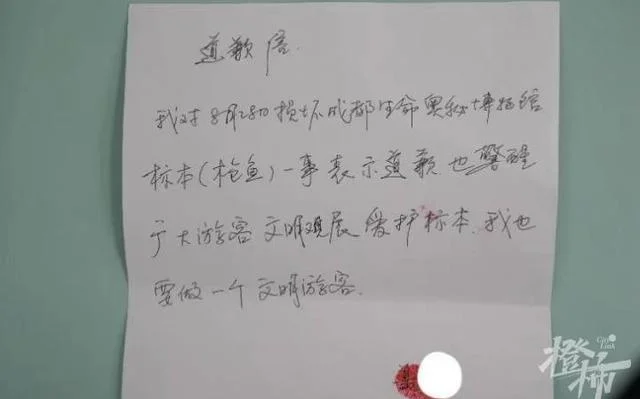 道歉信.
我对8月28日损坏成都生命奥秘博物馆
标本(枪鱼)一事表示道歉也警醒
广大游客文明观展爱护标本.我也
要做一个文明游客.
City Link
橙柿